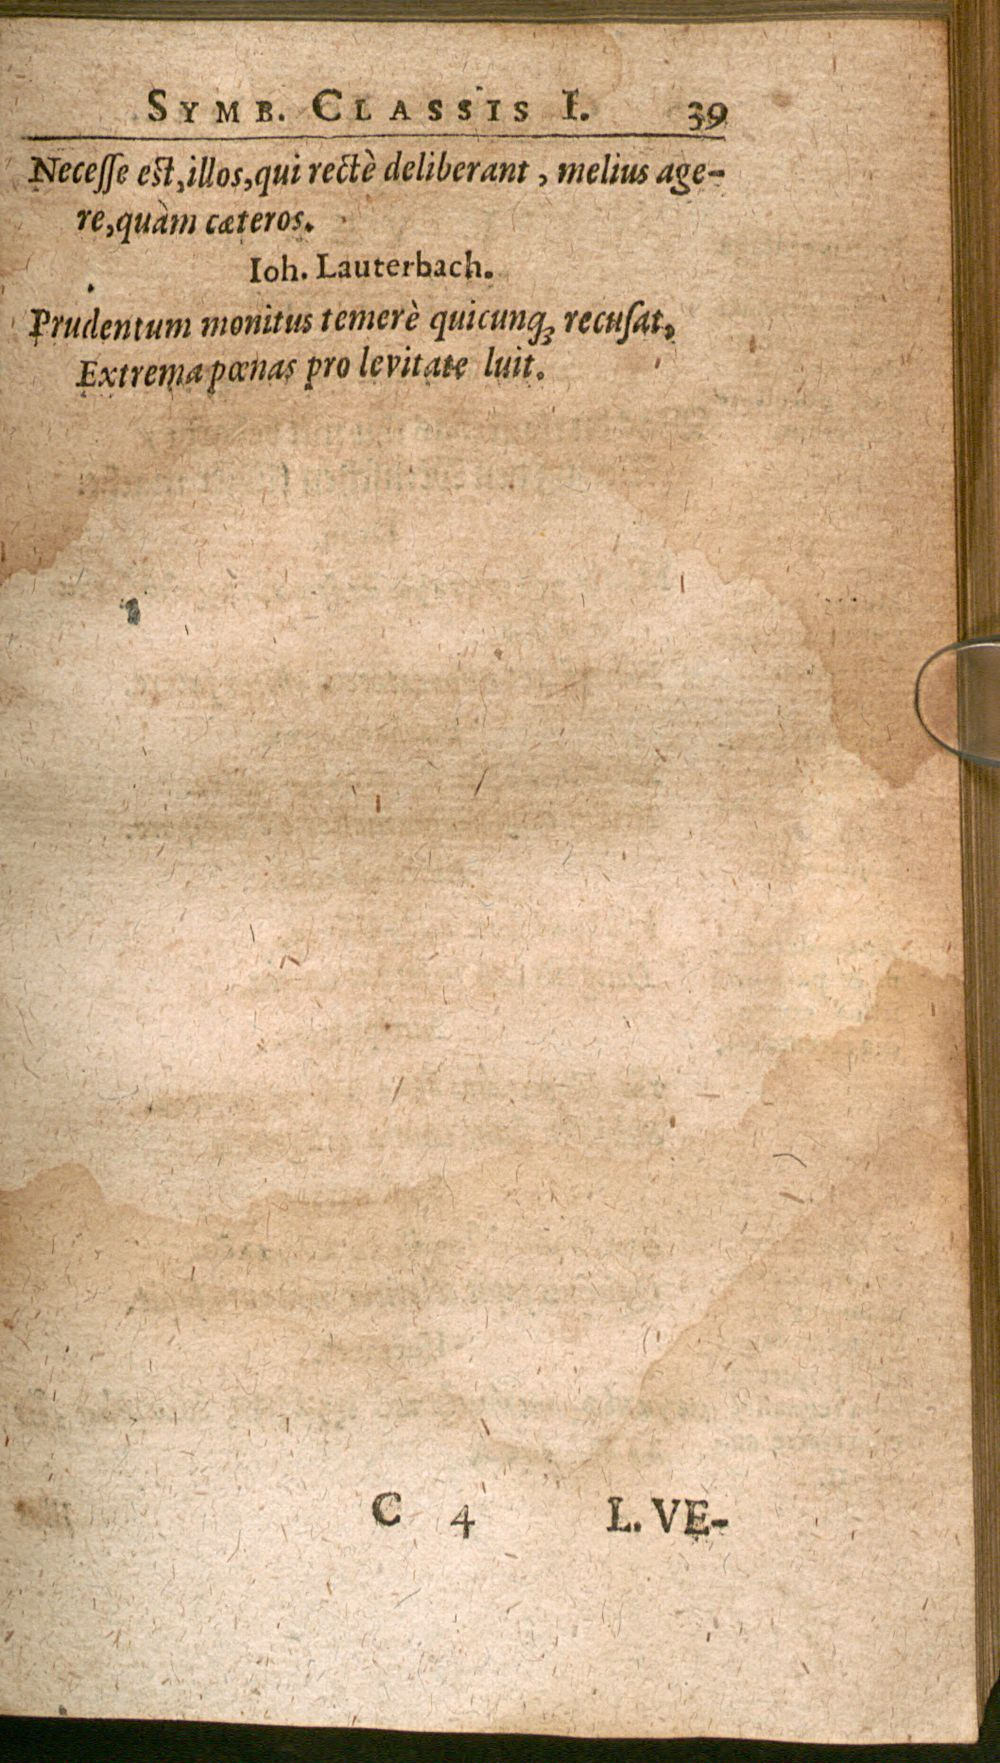 SYMB. CLASSIS I. 39
Necesse est, illos, qui rectè deliberant, melius age-
re, quàm cæteros.
Ioh. Lauterbach.
Prudentum monitus temerè quicunq; recusat,
Extrema pœnas pro levitate luit.
C 4 L. VE-